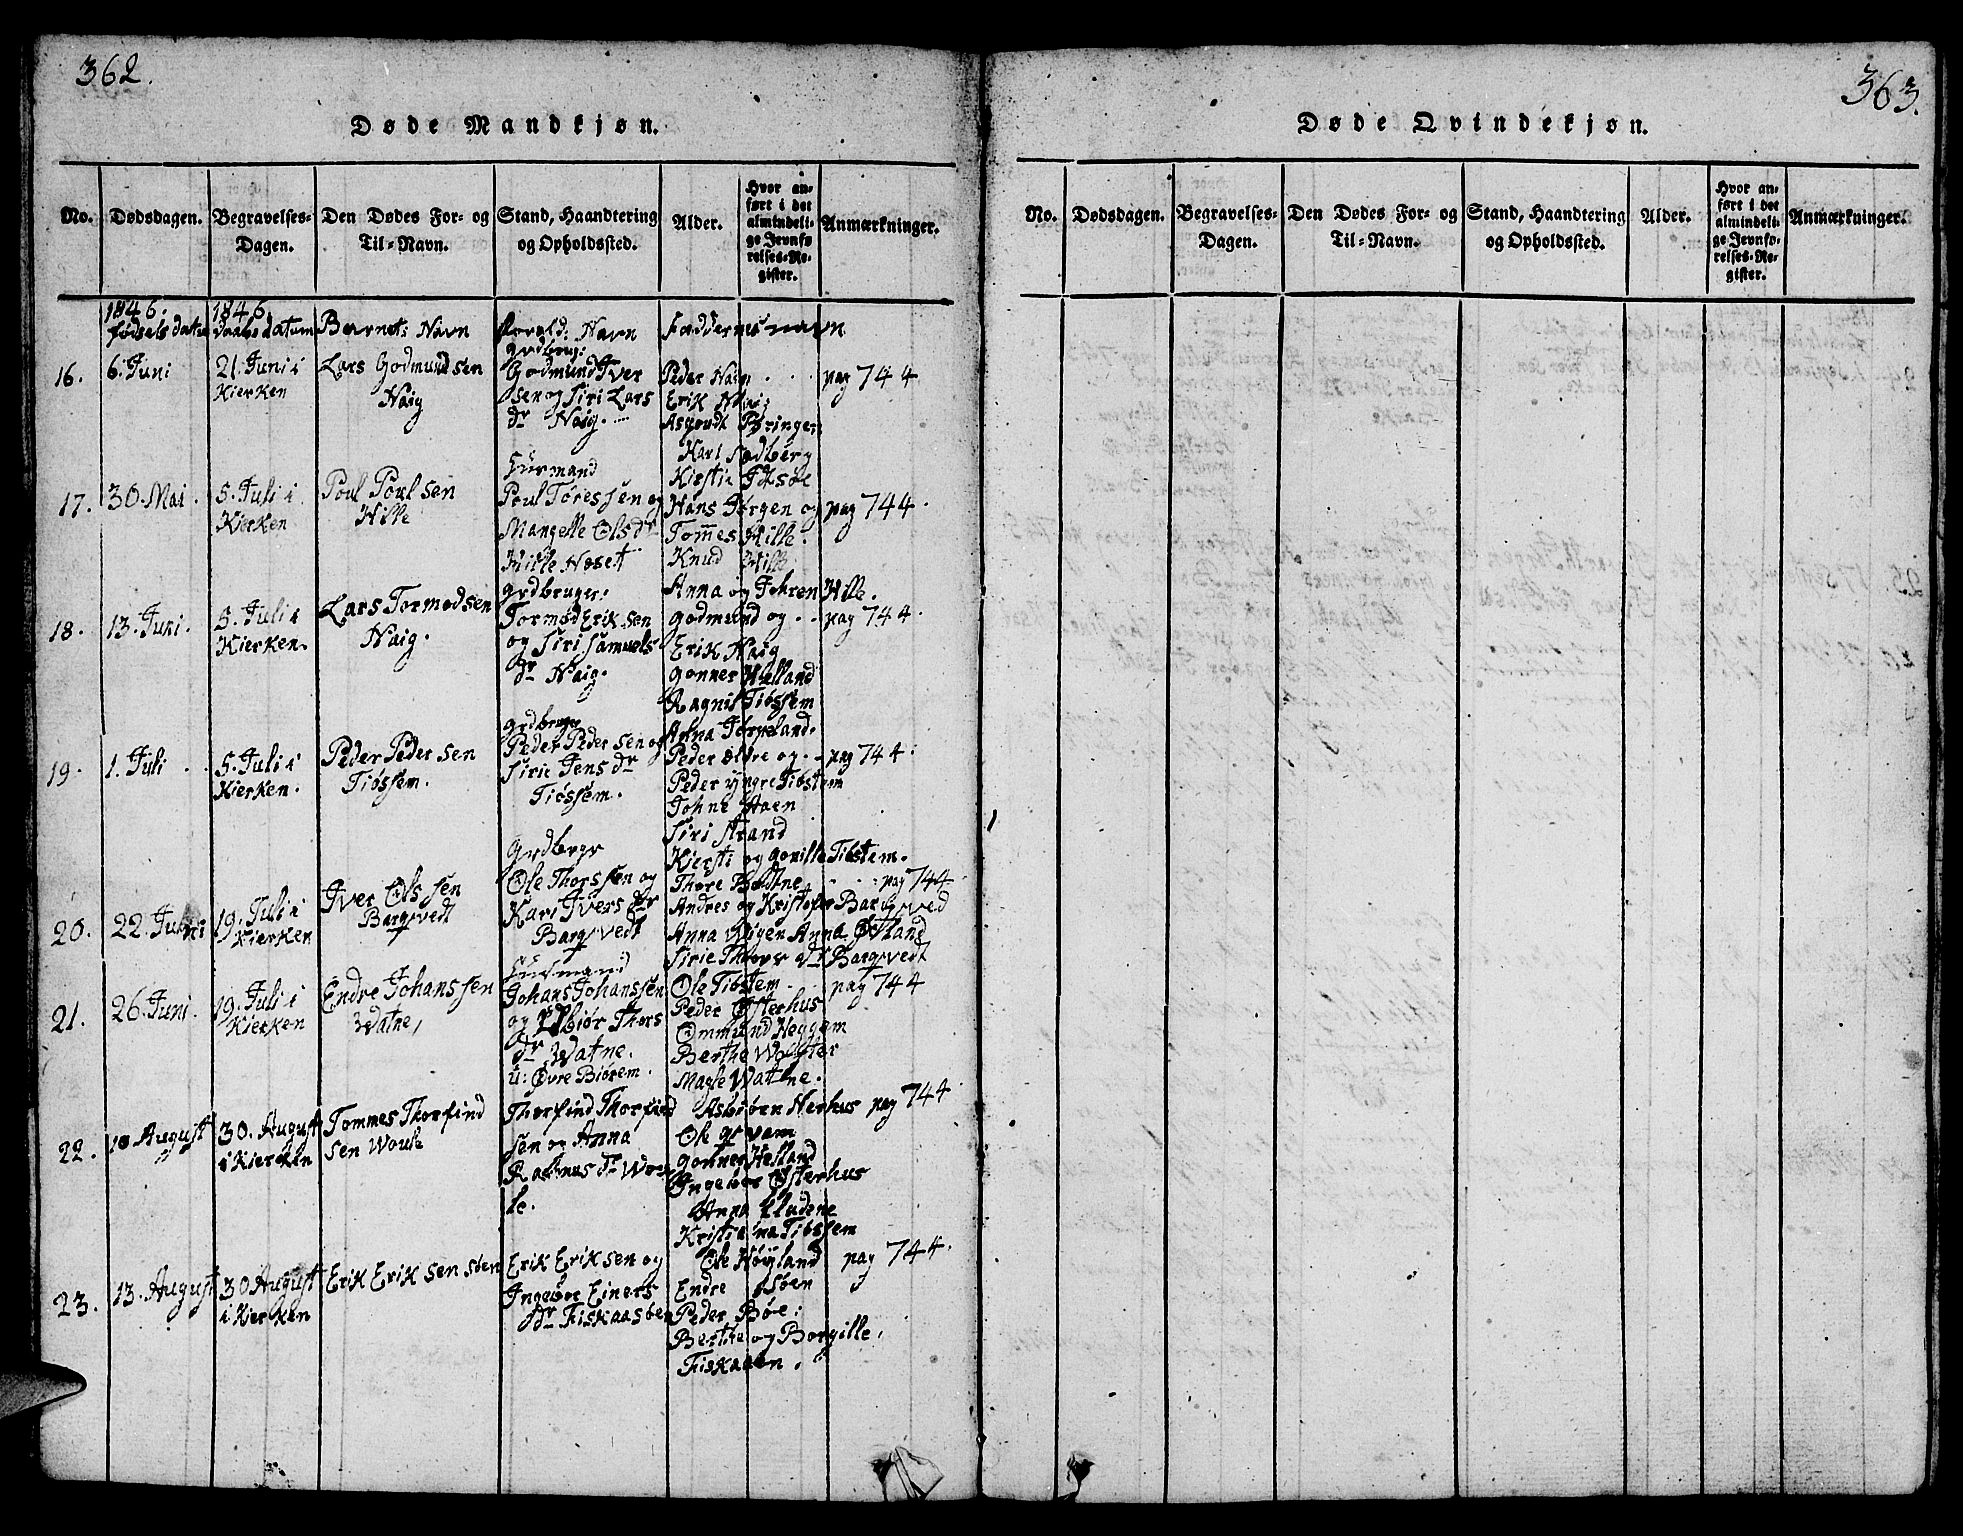 362.
Døde Mandkjøn.
No.
Dødsdagen.
Begravelses-
Dagen.
Den Dødes For- og
Til-Navn.
Stand, Haandtering
og Opholdssted.
Alder.
Hvor an-
ført i det
almindeli-
ge Jevnfø-
relses-Re-
gister.
Anmærkninger.
1846.
fødsels datum
1846
Daabs datum
Barnets Navn
Foræld: Navn
Faddernes navn
16.
6. Juni
21. Juni i
Kierken
Lars Godmundsen
Haig
grdbrug:
Godmund Iver
sen og Siri Lars
dr Haig.
Peder Haig
Erik Haig
Asgoudt Bringen
Kari Sodberg
Kirstie Idsøe
pag 744
17.
30. Mai.
5. Juli i
Kierken
Poul Poulsen
Hille
Huusmand
Poul Tøressen og
Mangelle Olsdr
Hille Neset
Hans Jørgen og
Tommes Hille.
Knud Hille
Anna og Johren Hille.
pag 744.
18.
13. Juni.
5. Juli i
Kierken.
Lars Tormodsen
Haig.
grdbruger.
Tormod Eriksen
og Siri Samuels
dr Haig.
Godmund og
Erik Haig
Gonner Helland
Ragnil Tiøssem
Anna Jørpeland.
pag 744.
19.
1. Juli
5. Juli i
Kierken.
Peder Pedersen
Tiøssem.
grdbruger
Peder Pedersen og
Sirie Jens dr
Tiøssem.
Peder eldre og
Peder yngre Tiøstem
Johne Haen
Siri Strand
Kiersti og Gonille Tiøstem.
pag 744.
20.
22. Juni
19. Juli i
Kierken
Iver Olssen
Bargsvedt
Grdbrgr
Ole Thorssen og
Kari Ivers dr
Bargsvedt
Thore Botne
Andres og Kristofer Bargsved
Anna Wigen Anna Øvland
Sirie Thors dr Bargsvedt
pag 744
21.
26. Juni.
19. Juli i
Kierken
Endre Johanssen
Watne,
Huusmand
Johans Johanssen
og Ødbiør Thors
dr Watne.
u: Øvre Biørem.
Ole Tiøstem
Peder Østerhus
Ommund Heggem
Berthe Wolster
Magle Watne.
pag 744
22.
10 August
30. August
i Kierken
Tommes Thorfind
sen Woule
Thorfind Thorfind
sen og Anna
Rasmus dr Wou
le.
Asbiøren Nerhus
Ole qvam
Gonner Helland
Ingebør Østerhus
Anna Kludene
Kristiana Tiøssem
pag 744
23.
13. August
30 August
i Kierken
Erik Eriksensøen
Erik Eriksen og
Ingebør Einers
dr Fiskaasøen
Ole Høyland
Endre Søen
Peder Bøe:
Berthe og Borgille,
Fiskaaen.
pag 744.
363.
Døde Qvindekjøn.
No.
Dødsdagen.
Begravelses-
Dagen.
Den Dødes For- og
Til-Navn.
Stand, Haandtering
og Opholdssted.
Alder.
Hvor an-
ført i det
almindeli-
ge Jevnfø-
relses-Re-
gister.
Anmærkninger.